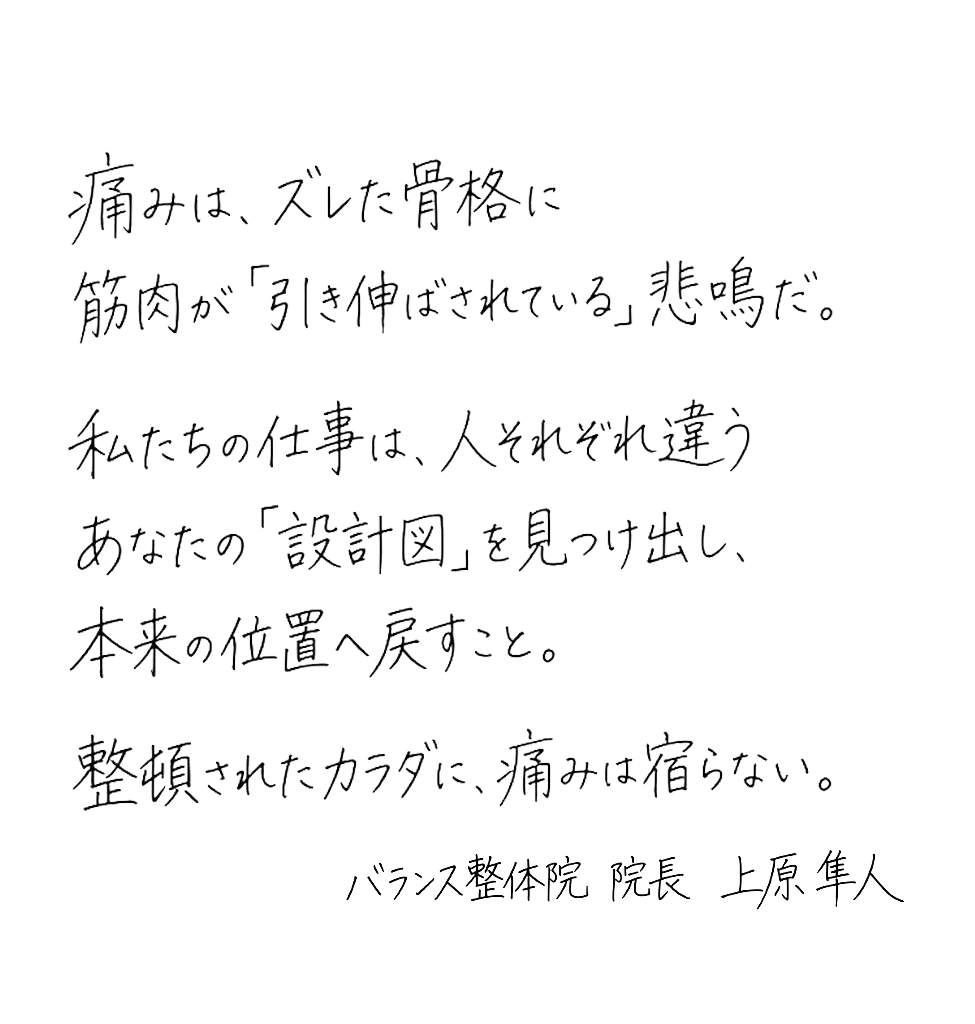 痛みは、ズレた骨格に
筋肉が「引き伸ばされている」悲鳴だ。
私たちの仕事は、人それぞれ違う
あなたの「設計図」を見つけ出し、
本来の位置へ戻すこと。
整頓されたカラダに、痛みは宿らない。
バランス整体院 院長 上原 隼人